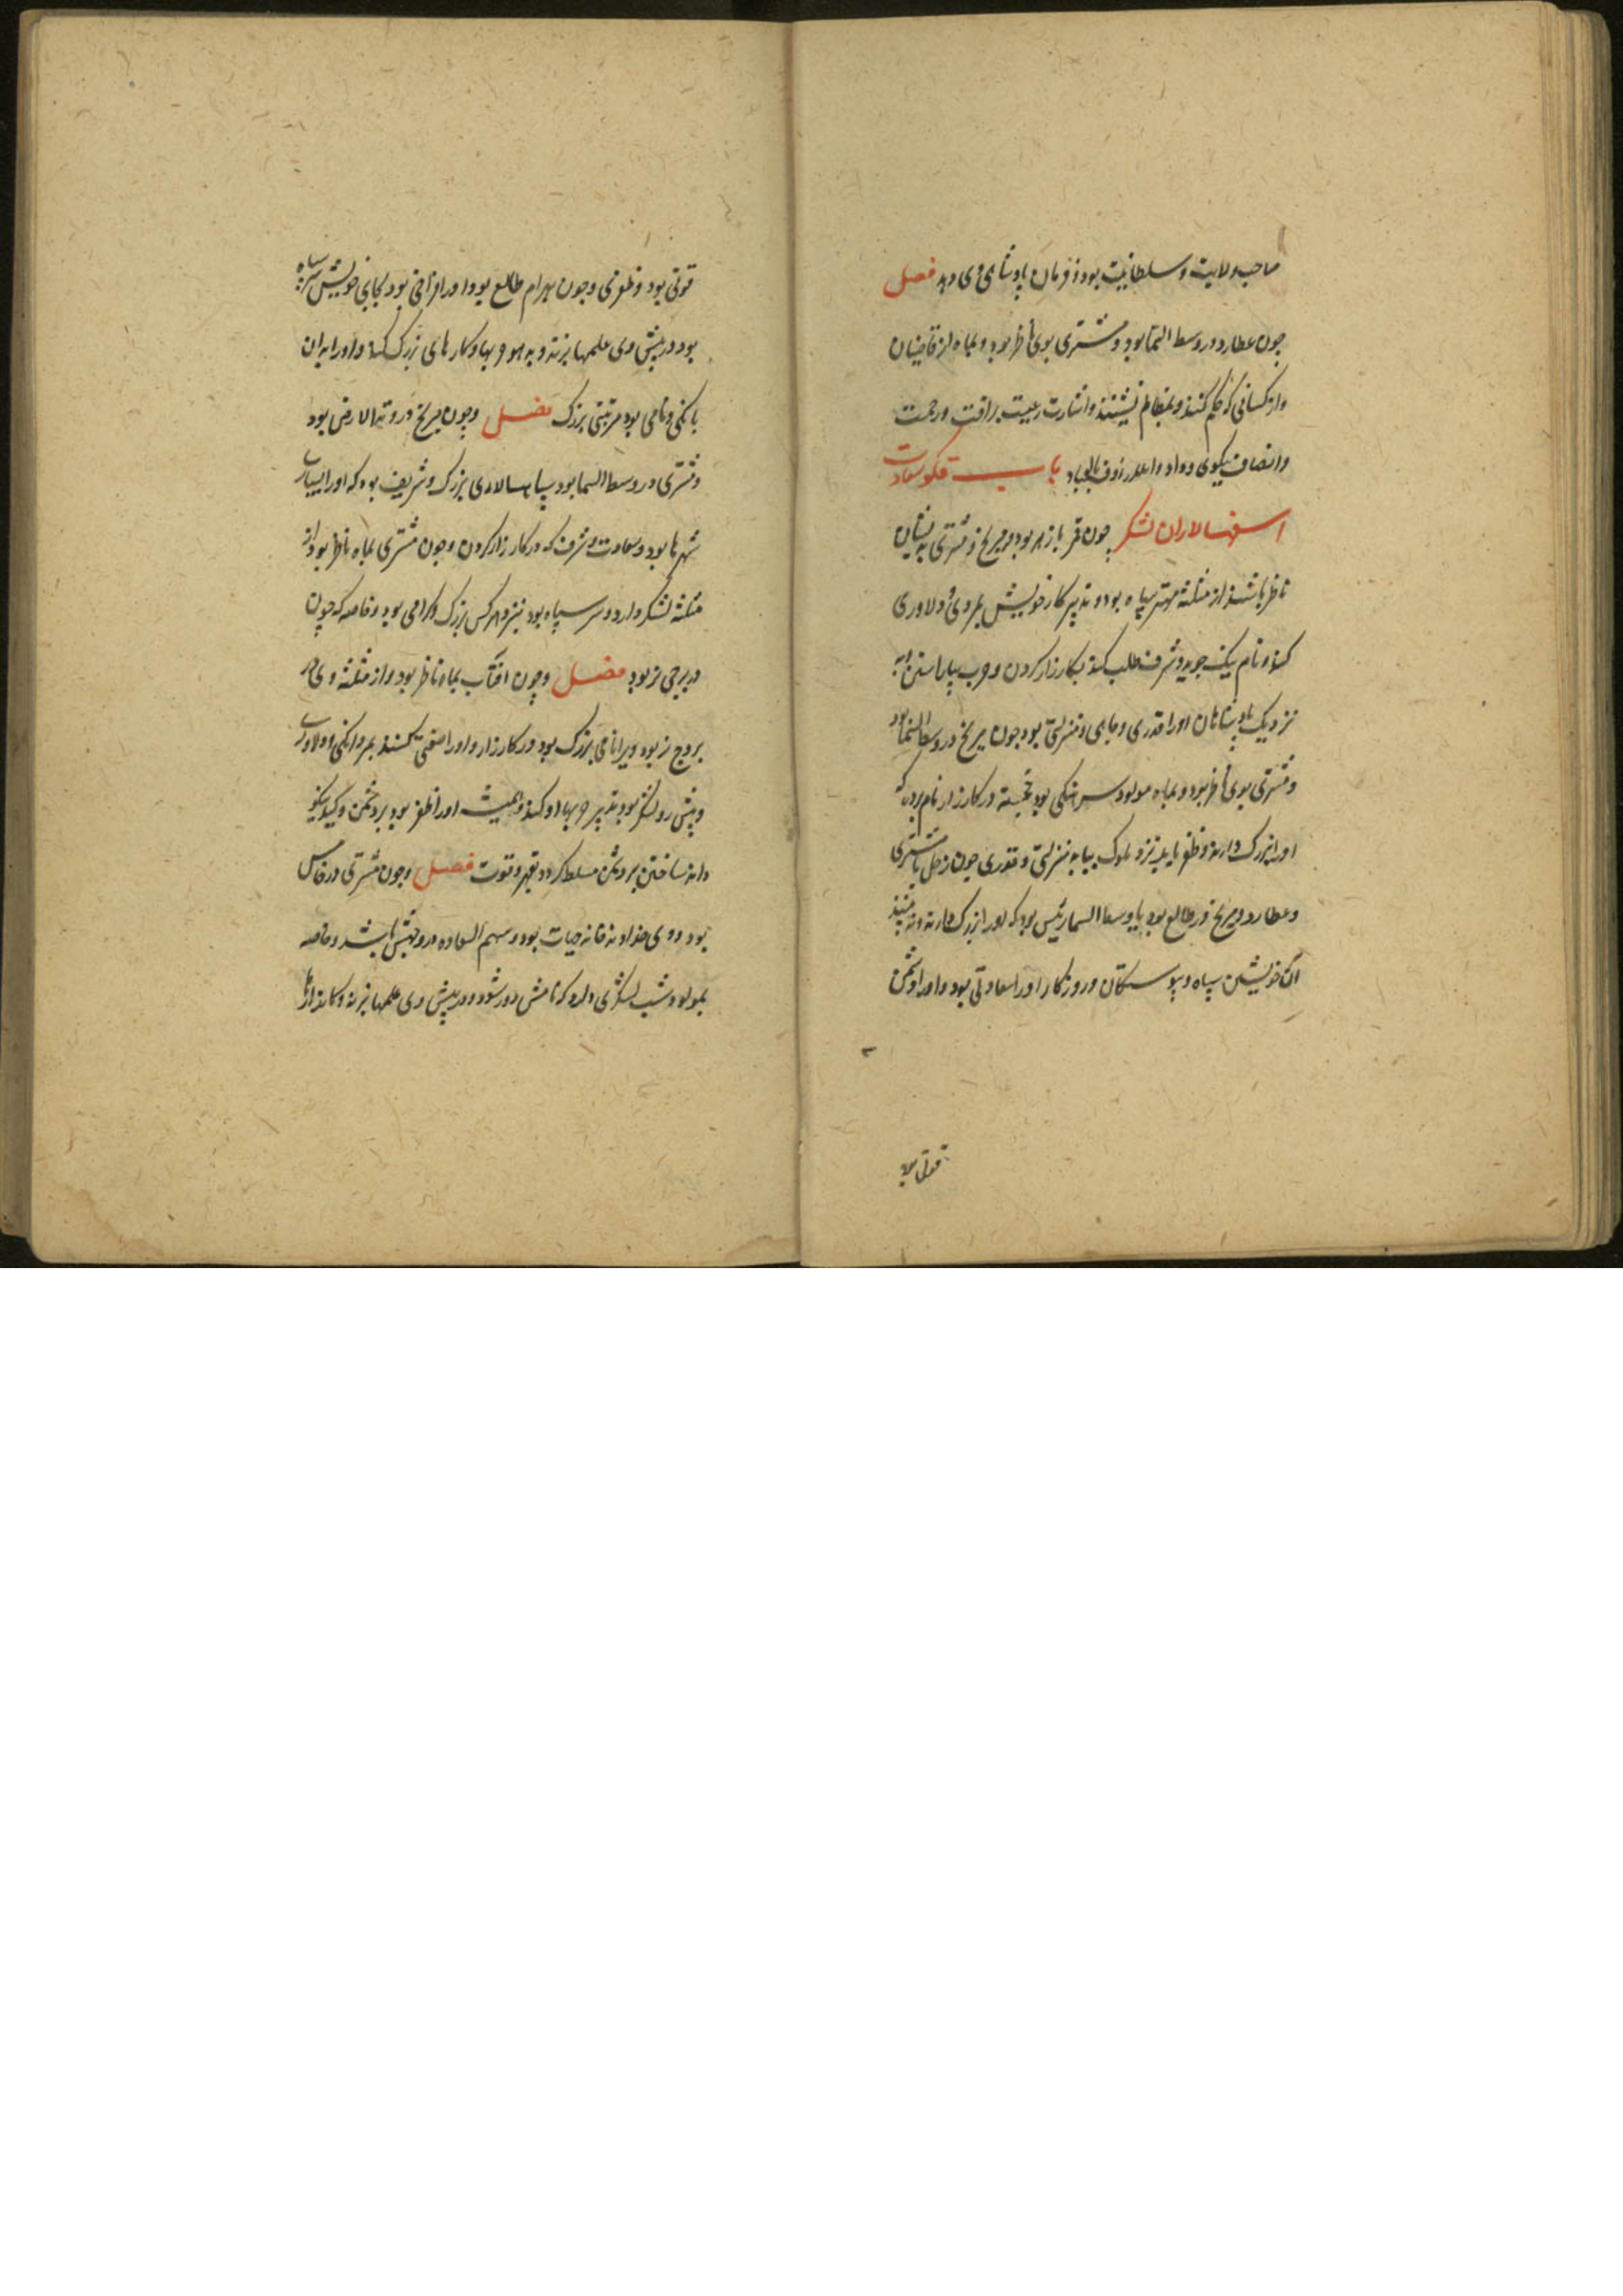 صاحب ولایت و سلطانیت بود و فرمان پادشاهی وی دهد فصل
چون عطارد در وسط السما بود و مشتری بوی ناظر بود و بماه از قاضیان
و از کسانی که حکم کنند و بمظالم نشینند و اشارت رعیت برافت و رحمت
و انصاف نیکوی و داد و اعلم رؤف بالعباد باب
اسفهسالاران لشکر چون قمر با زهره بود و مریخ و مشتری
ناظر باشند از مثلثه مهتر سپاه بود و تدبیر کار خویش بمردی و دلاوری
کند و نام نیک جوید و شرف طلب کند بکارزار کردن و حرب بیاراستن
نزدیک پادشاهان او را قدری و جاهی و منزلتی بود چون مریخ در وسط السما بود
و مشتری بوی ناظر بود و بماه مولود سرهنگی بود خجسته در کارزار نام برده که
او را بزرگ دارند و ظفر یابد نزد ملوک بیابد منزلتی و قدری چون زحل با مشتری
و عطارد و مریخ در طالع بود یا وسط السما رئیس بود که او را بزرگ دارند
آن خویشتن سپاه و پیوستگان و روزکار او را سعادتی بود و او را دشمن
قوتی بود
قوتی بود و ظفری و چون بهرام طالع بود او را بود بجای خویش سر سپاه
بود در پیش وی علمها برند و به حربها و کارهای بزرگ کند و او را بدان
بانکی و نامی بود مرتبتی بزرگ فصل و چون مریخ در وتد الارض بود
و مشتری در وسط السما بود سپاهسالاری بزرگ و شریف بود که او را بسیار
شهرها بود و سعادت و شرف که در کارزار کردن و چون مشتری بماه ناظر بود از
مثلثه لشکر دارد و سر سپاه بود نیز و هر کس بزرگ و گرامی بود و خاصه که چون
در برجی نر بود فصل و چون افتاب بماه ناظر بود و از مثلثه وی در
بروج نر بود ویرا نامی بزرگ بود در کارزار و او را صفتی کنند بمردانکی و دلاوری
و پیش رو لشکر بود بتدبیر حربها او کند و همیشه او را ظفر بود بر دشمن
دانند ساختن بر دشمن مسلط گردد بقهر و قوت فصل و چون مشتری در خامس
بود و وی خداوند خانه حیات بود و سهم السعاده در وجهش باشد و خاصه
بمولود شب لشکری دارد که نامش دور شود و در پیش وی علمها برند و